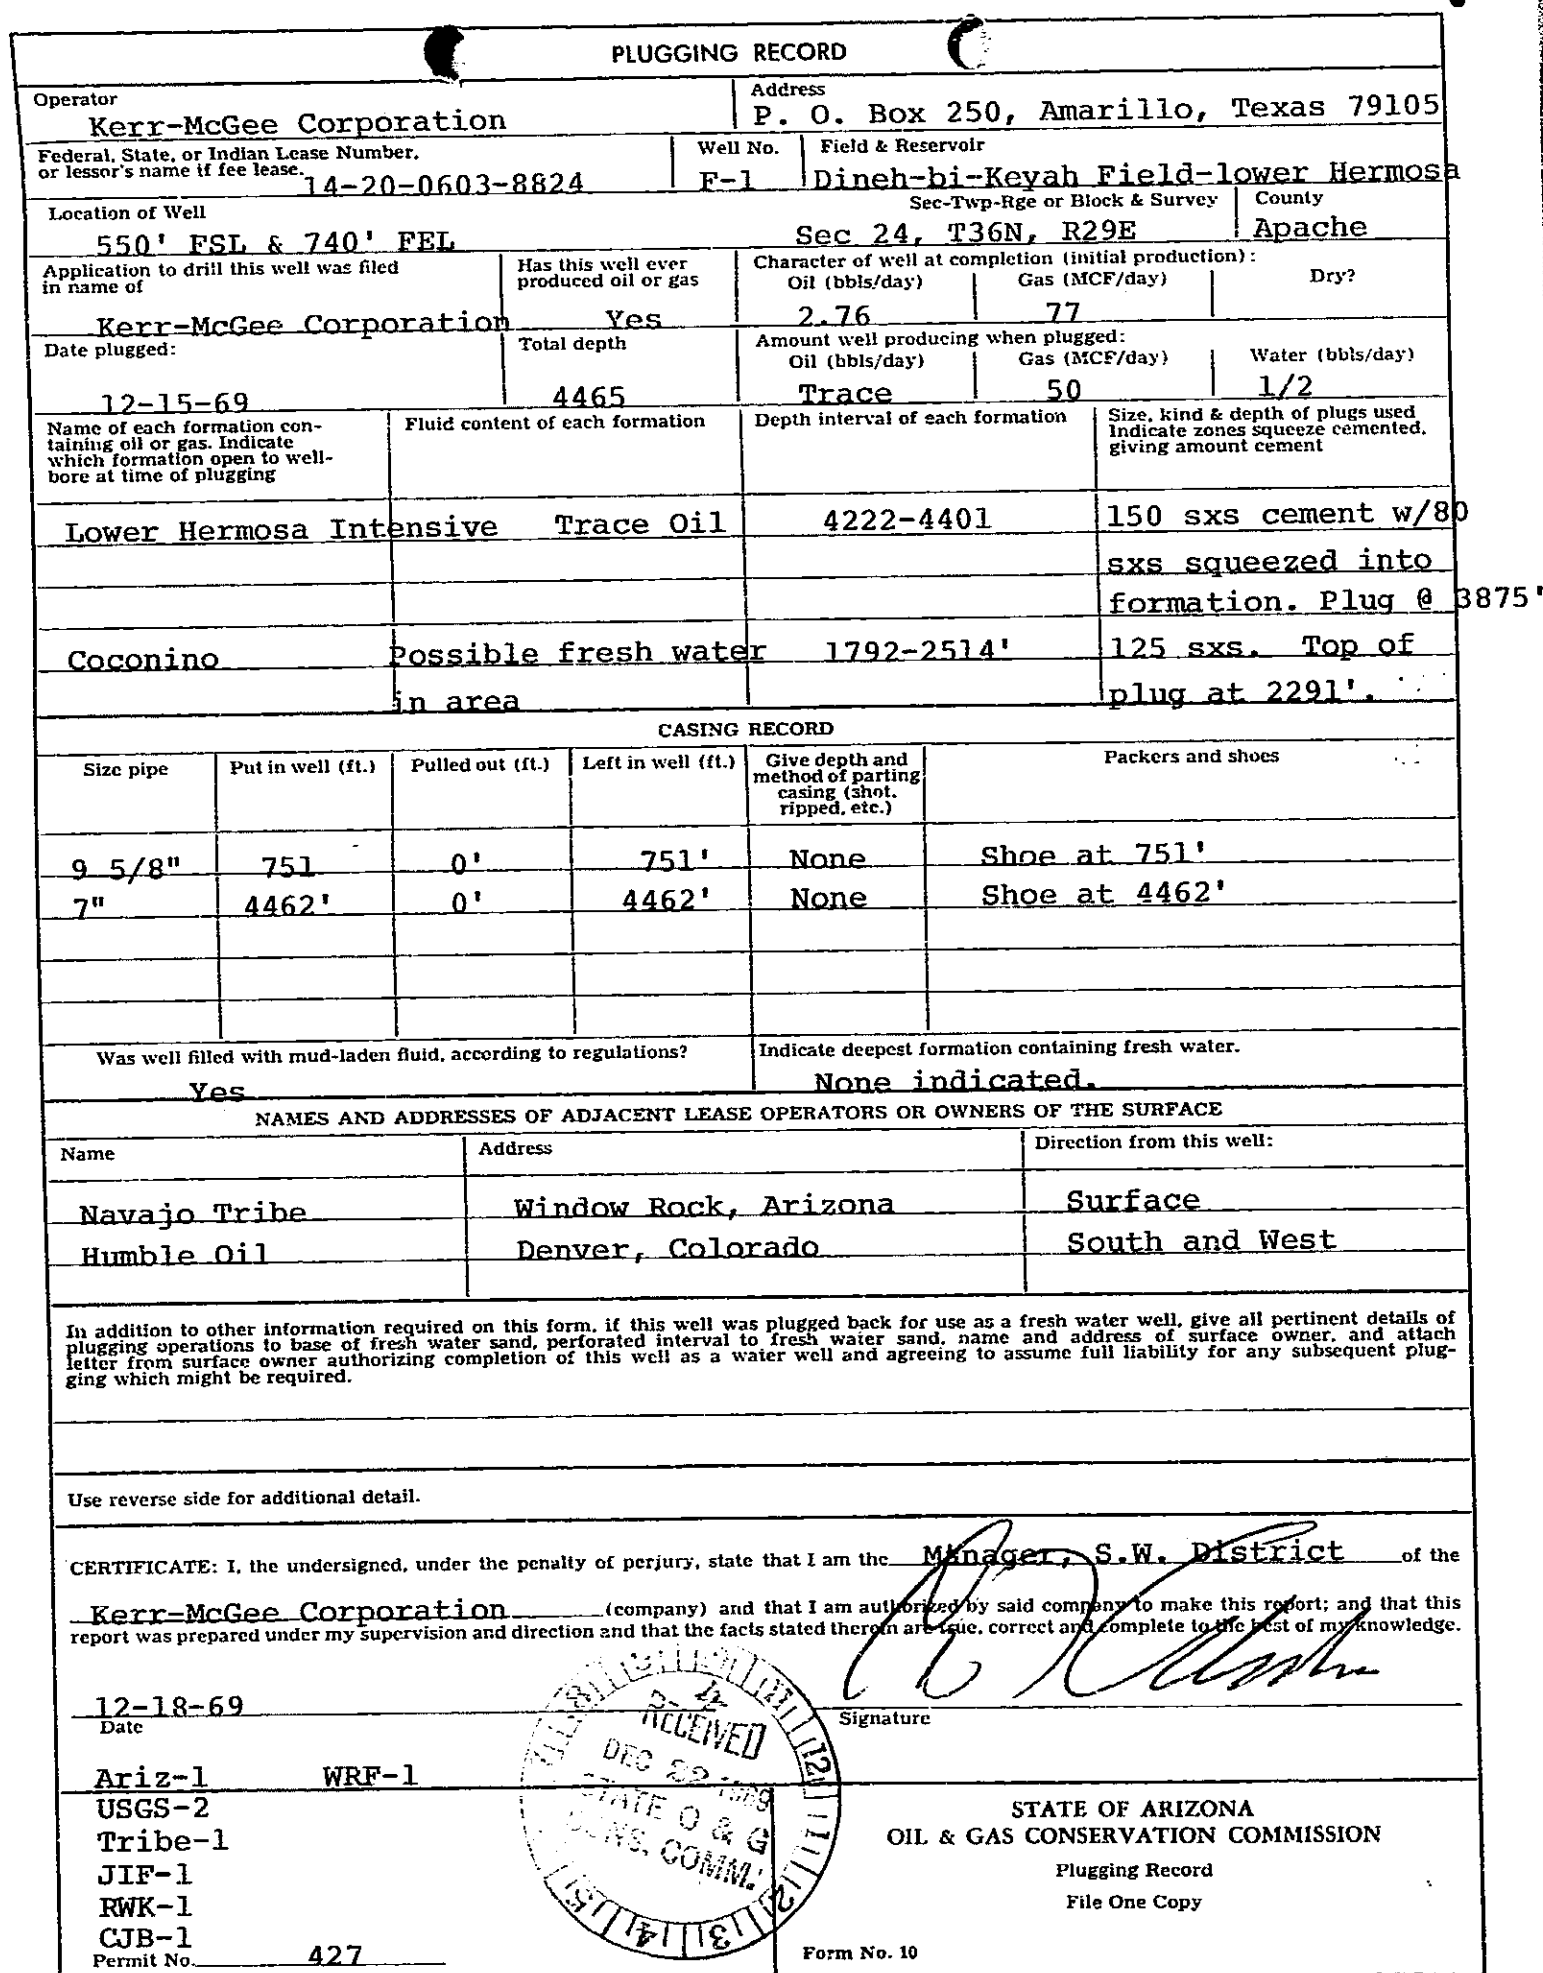 PLUGGING RECORD
Operator
Kerr-McGee Corporation
Address
P. O. Box 250, Amarillo, Texas 79105
Federal, State, or Indian Lease Number,
or lessor's name if fee lease. 14-20-0603-8824
Well No.
F-1
Field & Reservoir
Dineh-bi-Keyah Field-lower Hermosa
Location of Well
550' FSL & 740' FEL
Sec-Twp-Rge or Block & Survey
Sec 24, T36N, R29E
County
Apache
Application to drill this well was filed
in name of
Kerr-McGee Corporation
Has this well ever
produced oil or gas
Yes
Character of well at completion (initial production):
Oil (bbls/day) Gas (MCF/day) Dry?
2.76 77
Date plugged:
12-15-69
Total depth
4465
Amount well producing when plugged:
Oil (bbls/day) Gas (MCF/day) Water (bbls/day)
Trace 50 1/2
Name of each formation con-
taining oil or gas. Indicate
which formation open to well-
bore at time of plugging
Fluid content of each formation
Depth interval of each formation
Size, kind & depth of plugs used
Indicate zones squeeze cemented,
giving amount cement
Lower Hermosa Intensive Trace Oil 4222-4401 150 sxs cement w/80
sxs squeezed into
formation. Plug @ 3875'
Coconino Possible fresh water 1792-2514' 125 sxs. Top of
in area plug at 2291'.
CASING RECORD
Size pipe Put in well (ft.) Pulled out (ft.) Left in well (ft.)
Give depth and
method of parting
casing (shot,
ripped, etc.)
Packers and shoes
9 5/8" 751 0' 751' None Shoe at 751'
7" 4462' 0' 4462' None Shoe at 4462'
Was well filled with mud-laden fluid, according to regulations?
Yes
Indicate deepest formation containing fresh water.
None indicated.
NAMES AND ADDRESSES OF ADJACENT LEASE OPERATORS OR OWNERS OF THE SURFACE
Name Address Direction from this well:
Navajo Tribe Window Rock, Arizona Surface
Humble Oil Denver, Colorado South and West
In addition to other information required on this form, if this well was plugged back for use as a fresh water well, give all pertinent details of
plugging operations to base of fresh water sand, perforated interval to fresh water sand, name and address of surface owner, and attach
letter from surface owner authorizing completion of this well as a water well and agreeing to assume full liability for any subsequent plug-
ging which might be required.
Use reverse side for additional detail.
CERTIFICATE: I, the undersigned, under the penalty of perjury, state that I am the Manager, S.W. District of the
Kerr-McGee Corporation (company) and that I am authorized by said company to make this report; and that this
report was prepared under my supervision and direction and that the facts stated therein are true, correct and complete to the best of my knowledge.
12-18-69
Date
Signature
RECEIVED
DEC 22 1969
STATE O & G
CONS. COMM.
Ariz-1 WRF-1
USGS-2
Tribe-1
JIF-1
RWK-1
CJB-1
Permit No. 427
STATE OF ARIZONA
OIL & GAS CONSERVATION COMMISSION
Plugging Record
File One Copy
Form No. 10